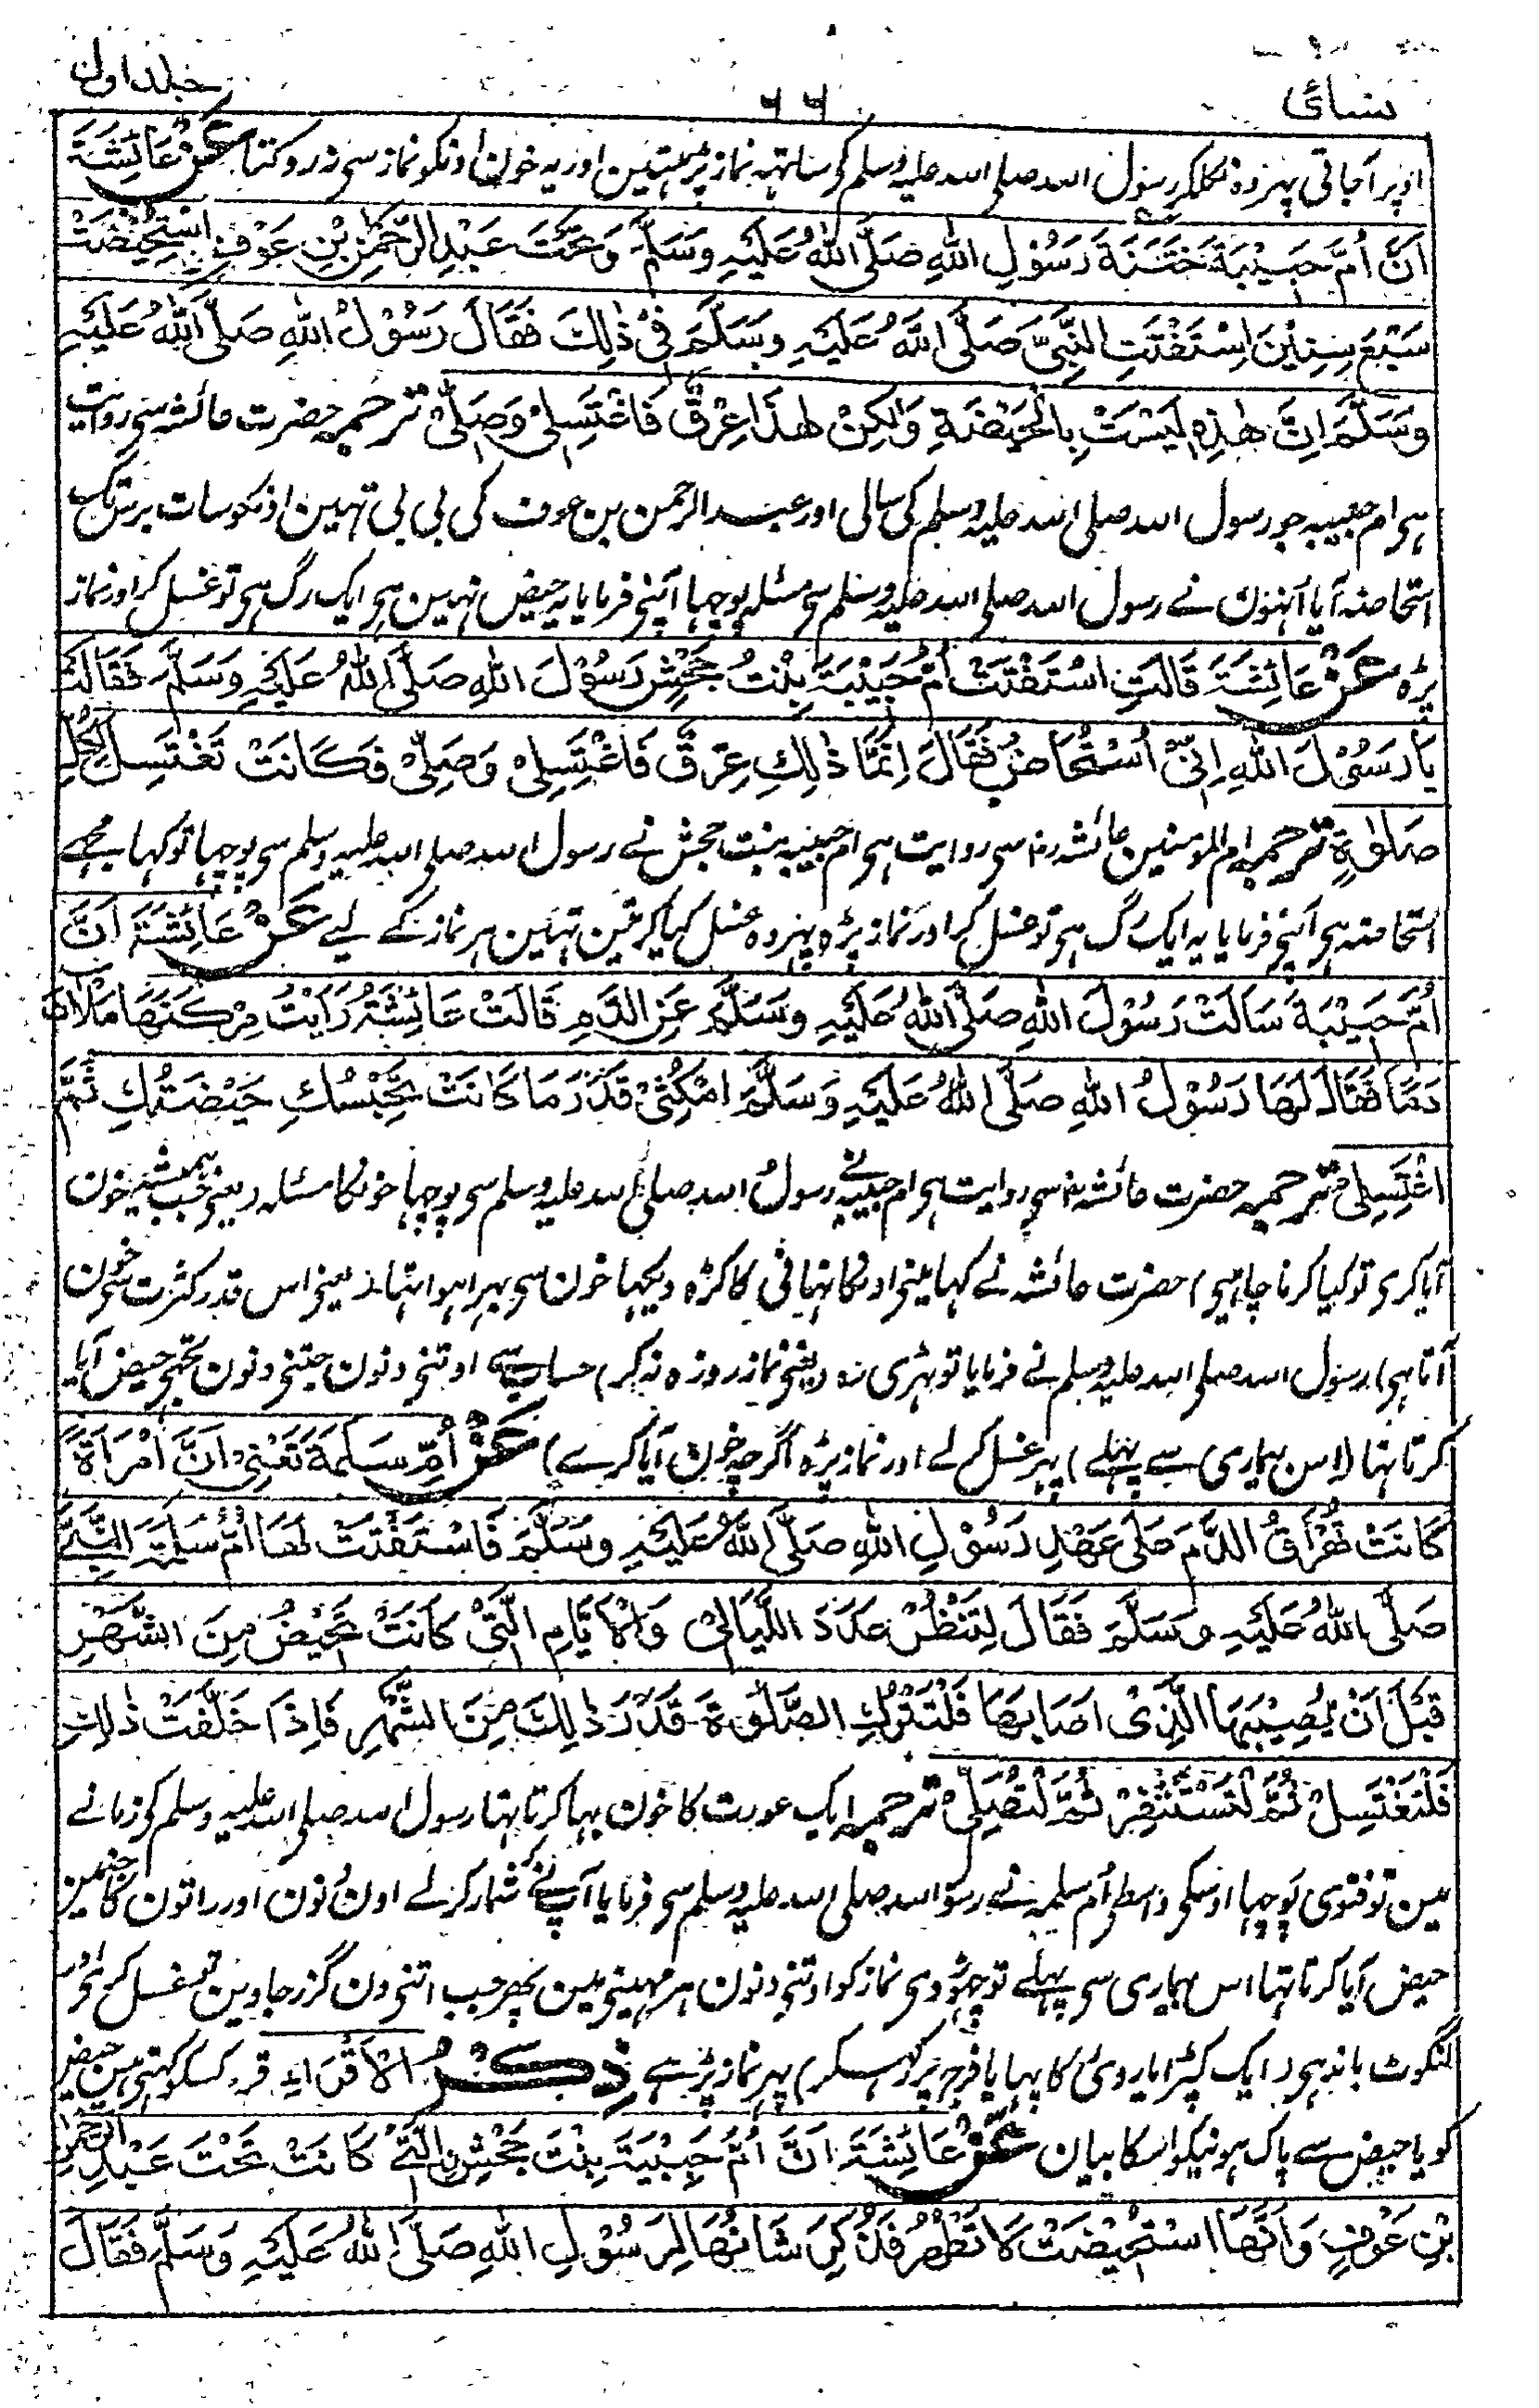 نسائی ۶۶ جلد اول
اوپر آجاتی پہر وہ نکلکر رسول اللہ صلی اللہ علیہ وسلم کو ساتہہ نماز پڑہتیں اور یہ خون اونکو نماز سی نہ روکتا عَنْ عَائِشَةَ
اَنَّ اُمَّ حَبِيْبَةَ خَتَنَةَ رَسُوْلِ اللّٰهِ صَلَّى اللّٰهُ عَلَيْهِ وَسَلَّمَ وَتَحْتَ عَبْدِ الرَّحْمٰنِ بْنِ عَوْفٍ اسْتُحِيْضَتْ
سَبْعَ سِنِيْنَ اِسْتَفْتَتِ النَّبِيَّ صَلَّى اللّٰهُ عَلَيْهِ وَسَلَّمَ فِيْ ذٰلِكَ فَقَالَ رَسُوْلُ اللّٰهِ صَلَّى اللّٰهُ عَلَيْهِ
وَسَلَّمَ اِنَّ هٰذِهٖ لَيْسَتْ بِالْحَيْضَةِ وَلٰكِنْ هٰذَا عِرْقٌ فَاغْتَسِلِيْ وَصَلِّيْ ترجمہ حضرت عائشہ سی روایت
ہی ام حبیبہ جو رسول اللہ صلی اللہ علیہ وسلم کی سالی اور عبد الرحمن بن عوف کی بی بی تہین اونکو سات برس تک
استحاضہ آیا اُنہوں نے رسول اللہ صلی اللہ علیہ وسلم سی مسئلہ پوچہا آپنی فرمایا یہ حیض نہین ہی ایک رگ ہی تو غسل کر اور نماز
پڑہ عَنْ عَائِشَةَ قَالَتِ اسْتَفْتَتْ اُمُّ حَبِيْبَةَ بِنْتُ جَحْشٍ رَسُوْلَ اللّٰهِ صَلَّى اللّٰهُ عَلَيْهِ وَسَلَّمَ فَقَالَتْ
يَا رَسُوْلَ اللّٰهِ اِنِّيْ اُسْتَحَاضُ فَقَالَ اِنَّمَا ذٰلِكِ عِرْقٌ فَاغْتَسِلِيْ وَصَلِّيْ فَكَانَتْ تَغْتَسِلُ لِكُلِّ
صَلٰوةٍ ترجمہ ام المومنین عائشہ رض سی روایت ہی ام حبیبہ بنت جحش نے رسول اللہ صلی اللہ علیہ وسلم سی پوچہا تو کہا مجہے
استحاضہ ہی آپنی فرمایا یہ ایک رگ ہی تو غسل کر اور نماز پڑہ پہر وہ غسل کیا کرتین تہین ہر نماز کے لیے عَنْ عَائِشَةَ اَنَّ
اُمَّ حَبِيْبَةَ سَاَلَتْ رَسُوْلَ اللّٰهِ صَلَّى اللّٰهُ عَلَيْهِ وَسَلَّمَ عَنِ الدَّمِ قَالَتْ عَائِشَةُ رَاَيْتُ مِرْكَنَهَا مَلْاٰنَ
دَمًا فَقَالَ لَهَا رَسُوْلُ اللّٰهِ صَلَّى اللّٰهُ عَلَيْهِ وَسَلَّمَ امْكُثِيْ قَدْرَ مَا كَانَتْ تَحْبِسُكِ حَيْضَتُكِ ثُمَّ
اغْتَسِلِيْ ترجمہ حضرت عائشہ رض سی روایت ہی ام حبیبہ نے رسول اللہ صلی اللہ علیہ وسلم سی پوچہا خون کا مسئلہ (یعنی جب ہمیشہ خون
آیا کری تو کیا کرنا چاہیی) حضرت عائشہ نے کہا مینی اونکا نہانی کا کڑہ دیکہا خون سی بہرا ہوا تہا (یعنی اس قدر کثرت سی خون
آتا ہی) رسول اللہ صلی اللہ علیہ وسلم نے فرمایا تو ٹہری رہ (یعنی نماز روزہ نہ کر) حساب سے اوتنی دنون جتنی دنون تجہی حیض آیا
کرتا تہا (اس بیماری سے پہلے) پہر غسل کرلے اور نماز پڑہ اگرچہ خون آیا کرے) عَنْ اُمِّ سَلَمَةَ تَعْنِيْ اَنَّ امْرَاَةً
كَانَتْ تُهْرَاقُ الدَّمَ عَلٰى عَهْدِ رَسُوْلِ اللّٰهِ صَلَّى اللّٰهُ عَلَيْهِ وَسَلَّمَ فَاسْتَفْتَتْ لَهَا اُمُّ سَلَمَةَ النَّبِيَّ
صَلَّى اللّٰهُ عَلَيْهِ وَسَلَّمَ فَقَالَ لِتَنْظُرْ عَدَدَ اللَّيَالِيْ وَالْاَيَّامِ الَّتِيْ كَانَتْ تَحِيْضُ مِنَ الشَّهْرِ
قَبْلَ اَنْ يُصِيْبَهَا الَّذِيْ اَصَابَهَا فَلْتَتْرُكِ الصَّلٰوةَ قَدْرَ ذٰلِكَ مِنَ الشَّهْرِ فَاِذَا خَلَّفَتْ ذٰلِكَ
فَلْتَغْتَسِلْ ثُمَّ لْتَسْتَثْفِرْ ثُمَّ لْتُصَلِّيْ ترجمہ ایک عورت کا خون بہا کرتا تہا رسول اللہ صلی اللہ علیہ وسلم کو زمانے
مین تو فتوی پوچہا اوسکی واسطی اُم سلمہ نے رسول اللہ صلی اللہ علیہ وسلم سی فرمایا آپ نے شمار کرلے اون دنون اور راتون کا جنمین
حیض آیا کرتا تہا اس بیماری سی پہلے تو چہوڑ دی نماز کو اوتنی دنون ہر مہینی مین پہر جب اتنی دن گزر جاوین تو غسل کری اور
لنگوٹ باندہی (ایک کپڑا یا روئی کا پہایا فرج پر رکہکر) پہر نماز پڑہے ذِكْرُ الْاَقْرَاءِ قرء کسکو کہتی ہین حیض
کو یا حیض سے پاک ہونیکو اسکا بیان عَنْ عَائِشَةَ اَنَّ اُمَّ حَبِيْبَةَ بِنْتَ جَحْشِنِ الَّتِيْ كَانَتْ تَحْتَ عَبْدِ الرَّحْمٰنِ
بْنِ عَوْفٍ وَاَنَّهَا اسْتُحِيْضَتْ لَا تَطْهُرُ فَذُكِرَ شَانُهَا لِرَسُوْلِ اللّٰهِ صَلَّى اللّٰهُ عَلَيْهِ وَسَلَّمَ فَقَالَ